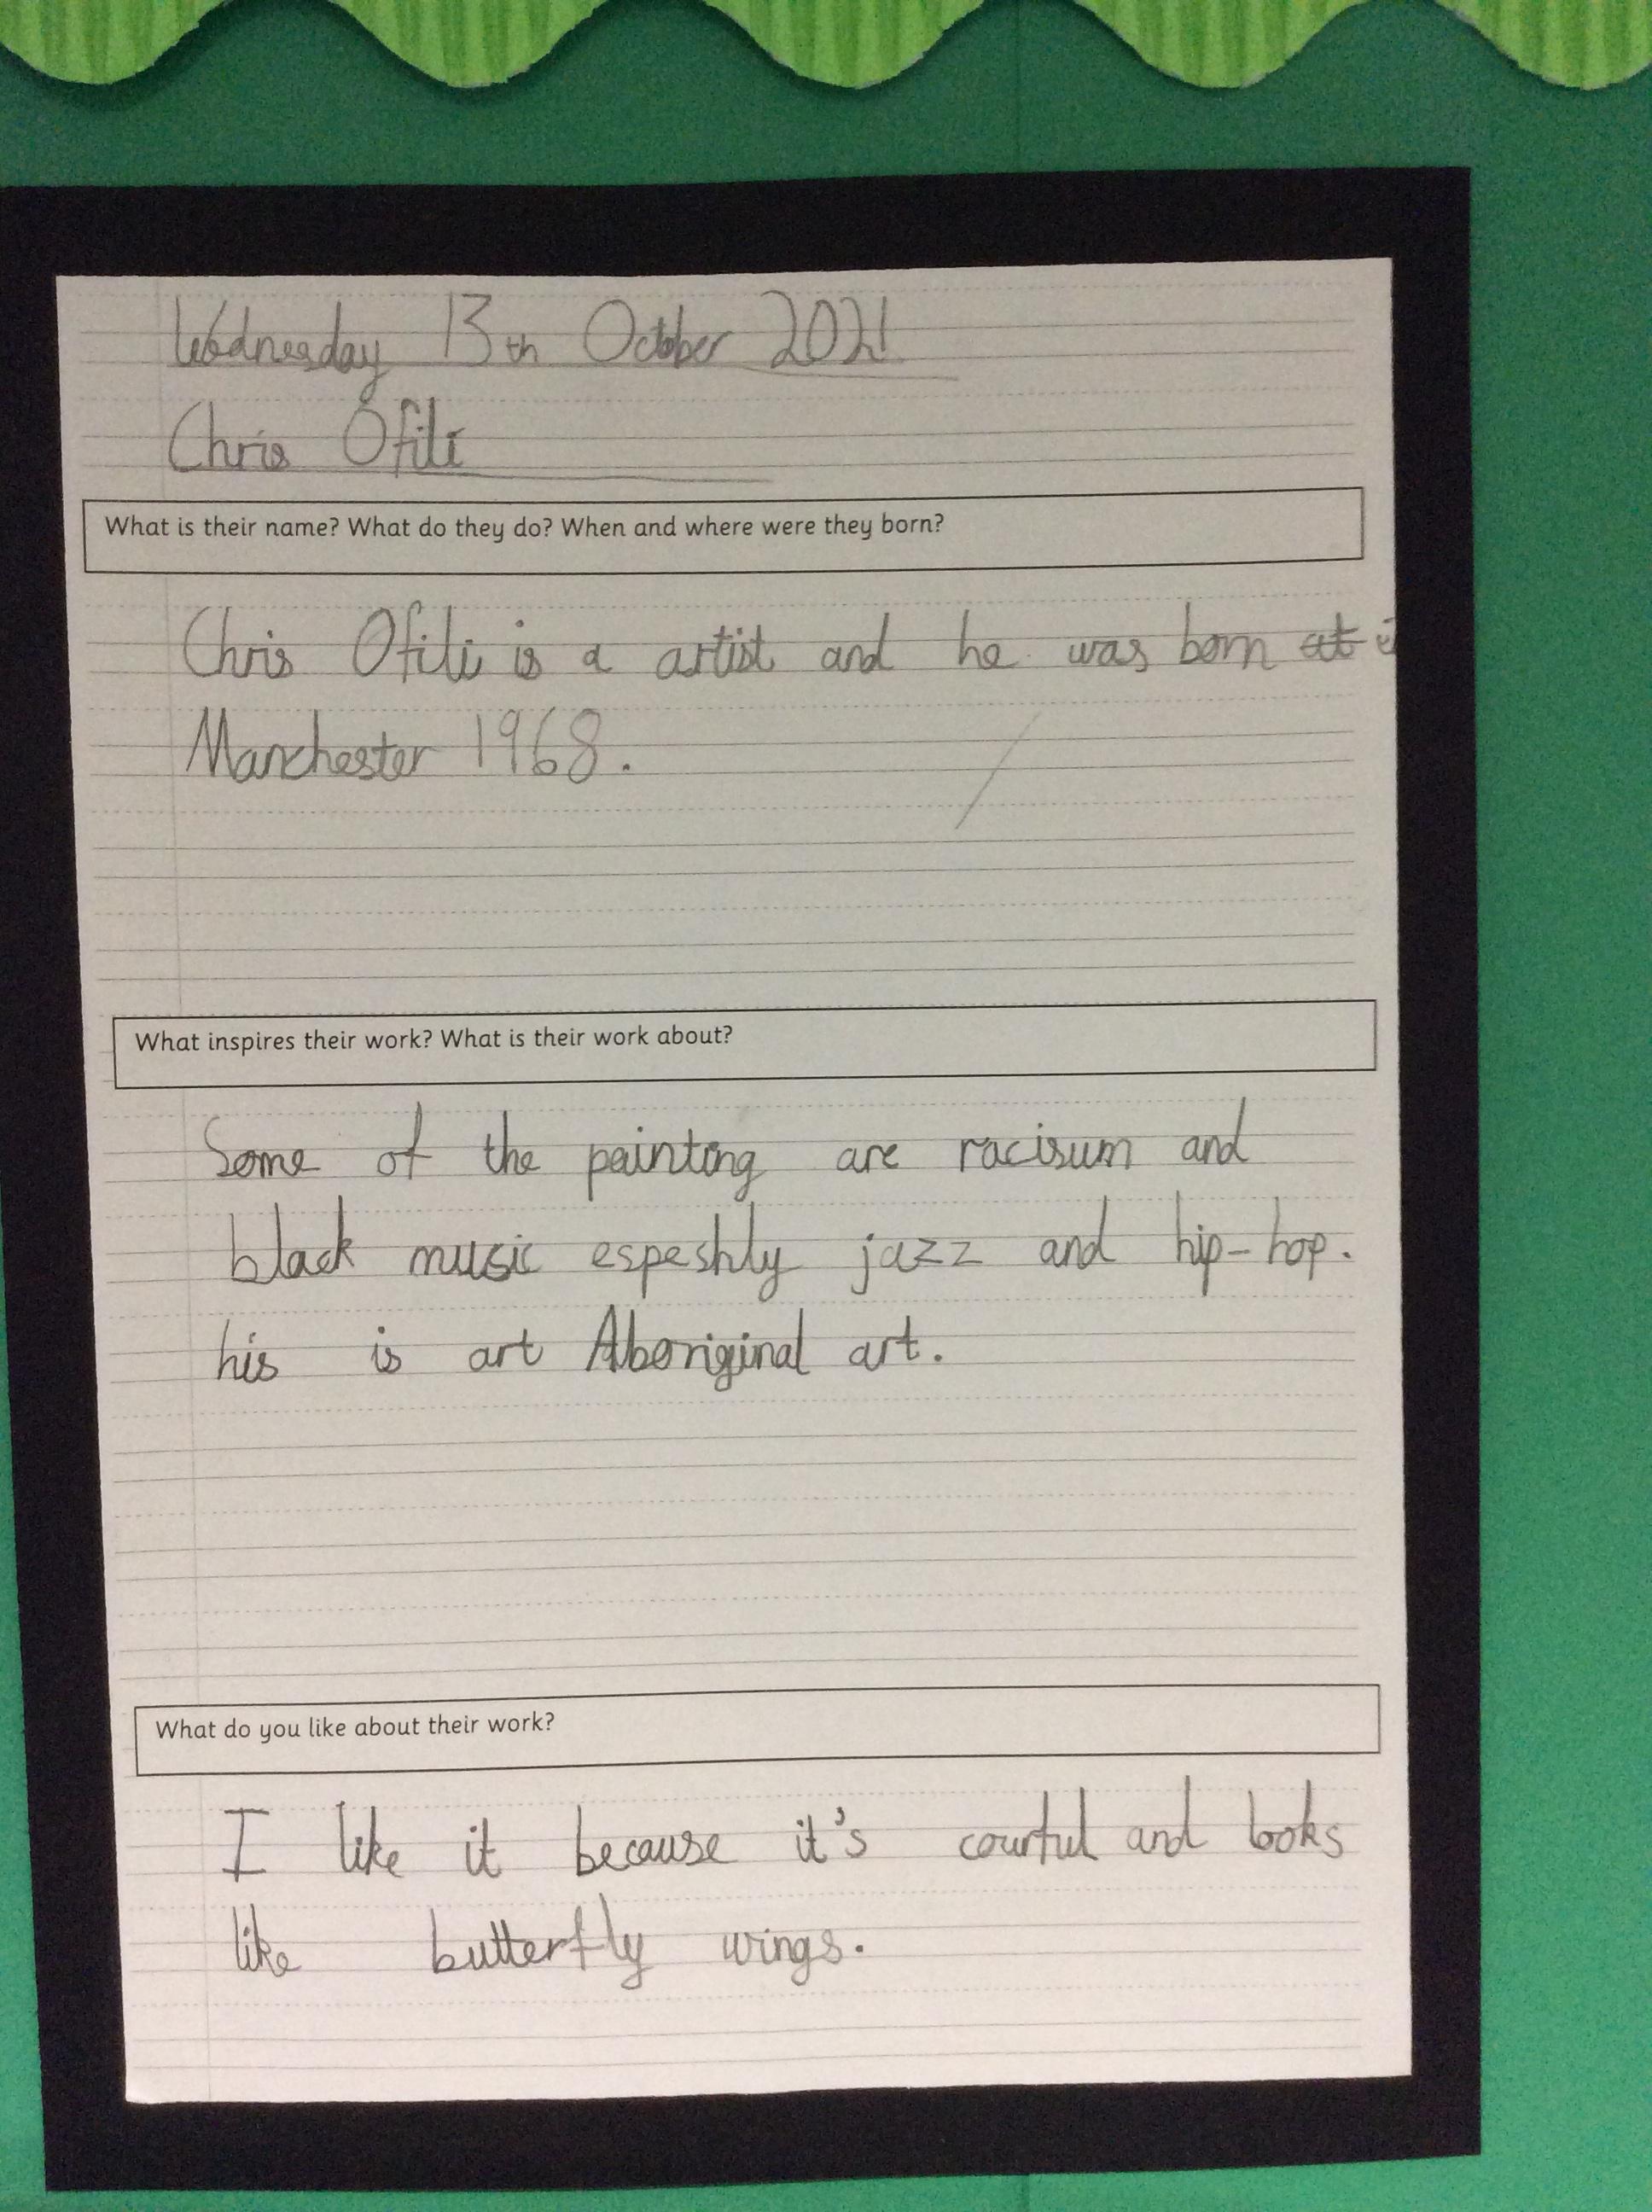 Wednesday 13th October 2021
Chris Ofili
What is their name? What do they do? When and where were they born?
Chris Ofili is a artist and he was born at
Manchester 1968.
What inspires their work? What is their work about?
Some of the painting are racisum and
black music espeshly jazz and hip-hop.
his is art Aboriginal art.
What do you like about their work?
I like it because it's courful and looks
like butterfly wings.